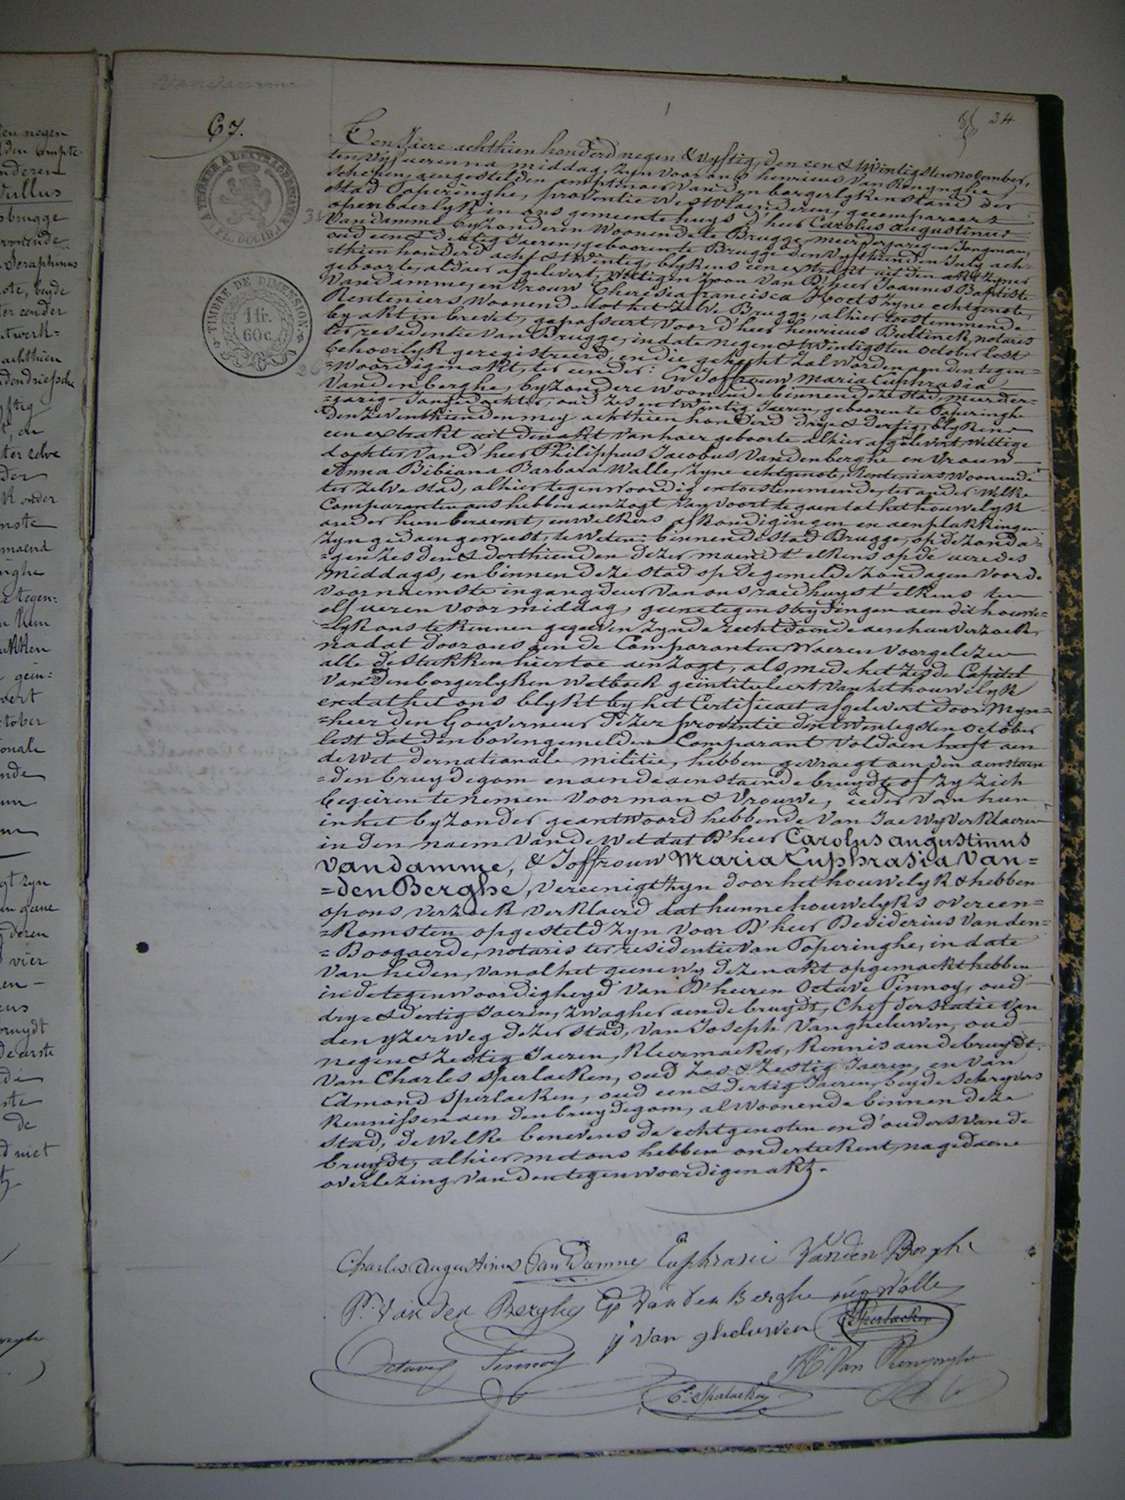 Vandamme
67.
34
Ten Jiere achthien honderd negen & vyftig, den een & twintigsten november,
ten vyf ueren na middag, zyn voor ons henricus Van Renynghe,
schepen, aengestelden amptenaer van den borgerlyken stand der
stad Poperinghe, provintie Westvlaenderen, gecompareert
openbaerlyk in ons gemeente huys d'heer Carolus augustinus
Vandamme, byzonderen woonende te Brugge, meerderjarigen Jongman,
oud een & dertig Jaeren, geboren te Brugge den vyfthienden July ach-
=thien honderd acht & twintig, blykens een extrakt uit den akt zyner
geboorte, aldaer afgelevert, wettigen zoon van D'heer Joannes Baptiste
Vandamme, en vrouw Theresia francisca Hoets zyne echtgenote,
Renteniers woonende tot het zelve Brugge, alhier toestemmende
by akt in brevet, gepasseert voor d'heer henricus Bultinck, notaris
ter residentie van Brugge, in date negen & twintigsten october lest
behoorlyk geregistreerd, en die gehecht zal worden aen den tegen-
=woordigen akt, ter eender: En Joffrouw Maria Euphrasia
Vandenberghe, byzondere woonende binnen deze stad, meerder-
=jarig Jongedochter, oud zes en twintig Jaeren, geboren te Poperinghe
den zeventhienden mey achthien honderd drye & dertig, blykens
een extrakt uit den akt van haer geboorte alhier afgelevert, wettige
dochter van d'heer Philippus Jacobus Vandenberghe en Vrouw
Anna Bibiana Barbara Walle, zyne echtgenote, Renteniers woonende
ter zelve stad, alhier tegenwoordig en toestemmende, ter ander. Welke
Comparanten ons hebben aenzogt, van voort te gaen tot het houwelyk
onder hun beraemt, en welkers afkondigingen en aenplakkingen
zyn gedaen geweest, te Weten: binnen de stad Brugge, op de zonda-
=gen zesden & derthienden dezer maend t'elkens op de uere des
middags, en binnen deze stad op de gemelde zondagen voor de
voornaemste ingangdeur van ons raedhuys t'elkens ten
elf ueren voor middag, geene tegenstrydingen aen dit houwe-
=lyk ons te kennen gegeven zynde, recht doende aen hun verzoek,
na dat door ons aen de Comparanten waeren voorgelezen
alle de stukken hier toe aenzogt, als mede het zesde Capittel
van den borgerlyken Wetboek geïntituleert van het houwelyk
en dat het ons blykt by het Certificaet afgelevert door Myn-
=heer den Gouverneur dezer provintie den twintigsten october
lest dat den bovengemelden Comparant voldaen heeft aen
de Wet der nationale militie, hebben gevraegt aen den aenstaen-
=den bruydegom en aen de aenstaende bruydt of zy zich
begeiren te nemen voor man & vrouwe, ieder van hun
in het byzonder geantwoord hebbende van Jae wy verklaeren
in den naem van de Wet dat D'heer Carolus augustinus
Vandamme, & Joffrouw Maria Euphrasia Van-
=den Berghe, vereenigt zyn door het houwelyk & hebben
op ons verzoek verklaerd dat hunne houwelyks overeen-
=komsten opgesteld zyn voor D'heer Desiderius Vanden-
=Boogaerde, notaris ter residentie van Poperinghe, in date
van heden, van al het geene wy dezen akt opgemaekt hebben
in de tegenwoordigheyd van D'heeren Octave Pinnoy, oud
drye & dertig Jaeren, zwagher aen de bruydt, Chef der Statie van
den yzer weg dezer stad, van Joseph Vangheluwen, oud
negen & zestig Jaeren, kleermaeker, kennis aen de bruydt.
van Charles Sperlaeken, oud zes & zestig Jaeren, en van
Edmond Sperlaeken, oud een & dertig Jaeren, beyde schryvers
kennissen aen den bruydegom, al woonende binnen deze
stad, de welke benevens de echtgenoten en d'ouders van de
bruydt, alhier met ons hebben onderteekent, na gedaene
overlezing van den tegenwoordigen akt.
Charles Augustinus Van Damme Euphrasie Vanden Berghe
P. Van den Berghe Ep Van den Berghe née Walle
J Van gheluwen E Sperlaeken
Octave Pinnoy H. Van Renynghe
Ch. Sperlaeken
TIMBRE DE DIMENSION.
1 fr.
60 c.